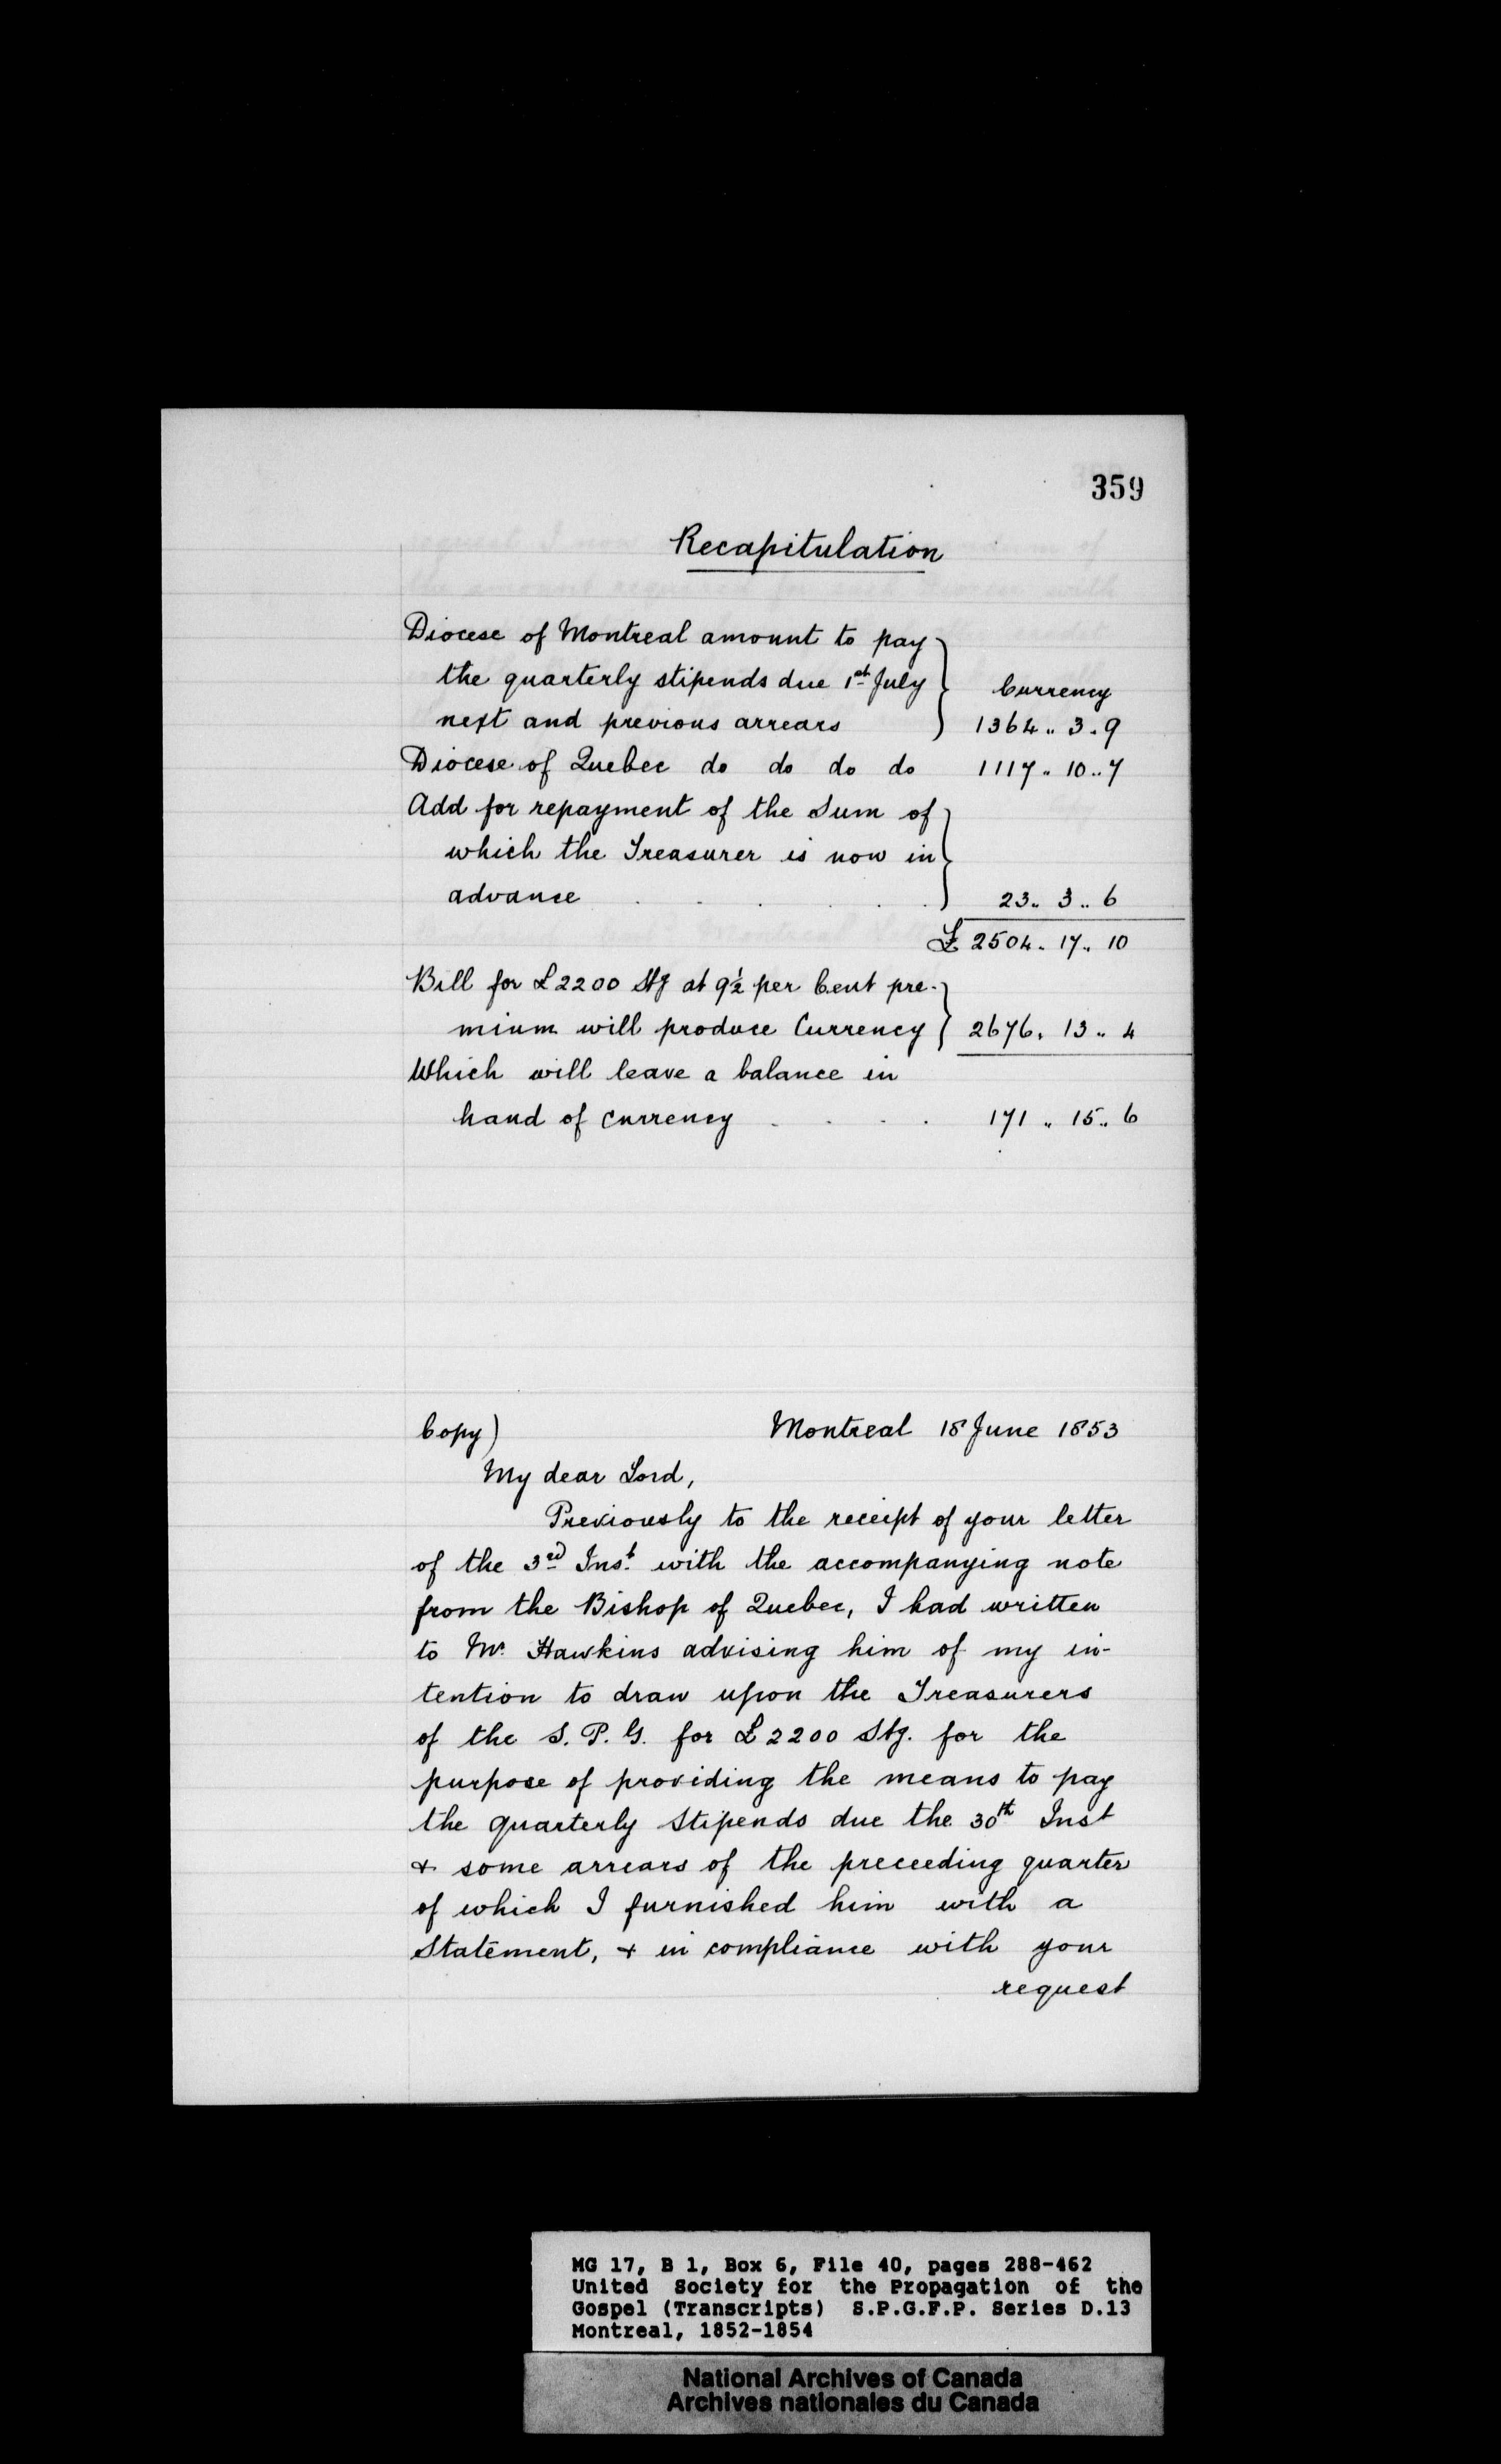 359
Recapitulation
Diocese of Montreal amount to pay
the quarterly stipends due 1st July
Currency
next and previous arrears
1364 .. 3 . 9
Diocese of Quebec do do do do 1117 .. 10 .. 7
Add for repayment of the Sum of
which the Treasurer is now in
advance . . . . . 23 .. 3 .. 6
£ 2504 .. 17 .. 10
Bill for £2200 Stg at 9½ per Cent pre-
mium will produce Currency 2676 .. 13 .. 4
Which will leave a balance in
hand of currency . . . . 171 .. 15 .. 6
Copy) Montreal 18 June 1853
My dear Lord,
Previously to the receipt of your letter
of the 3rd Inst. with the accompanying note
from the Bishop of Quebec, I had written
to Mr. Hawkins advising him of my in-
tention to draw upon the Treasurers
of the S. P. G. for £2200 Stg. for the
purpose of providing the means to pay
the quarterly Stipends due the 30th Inst
& some arrears of the preceeding quarter
of which I furnished him with a
Statement, & in compliance with your
request
MG 17, B 1, Box 6, File 40, pages 288-462
United Society for the Propagation of the
Gospel (Transcripts) S.P.G.F.P. Series D.13
Montreal, 1852-1854
National Archives of Canada
Archives nationales du Canada